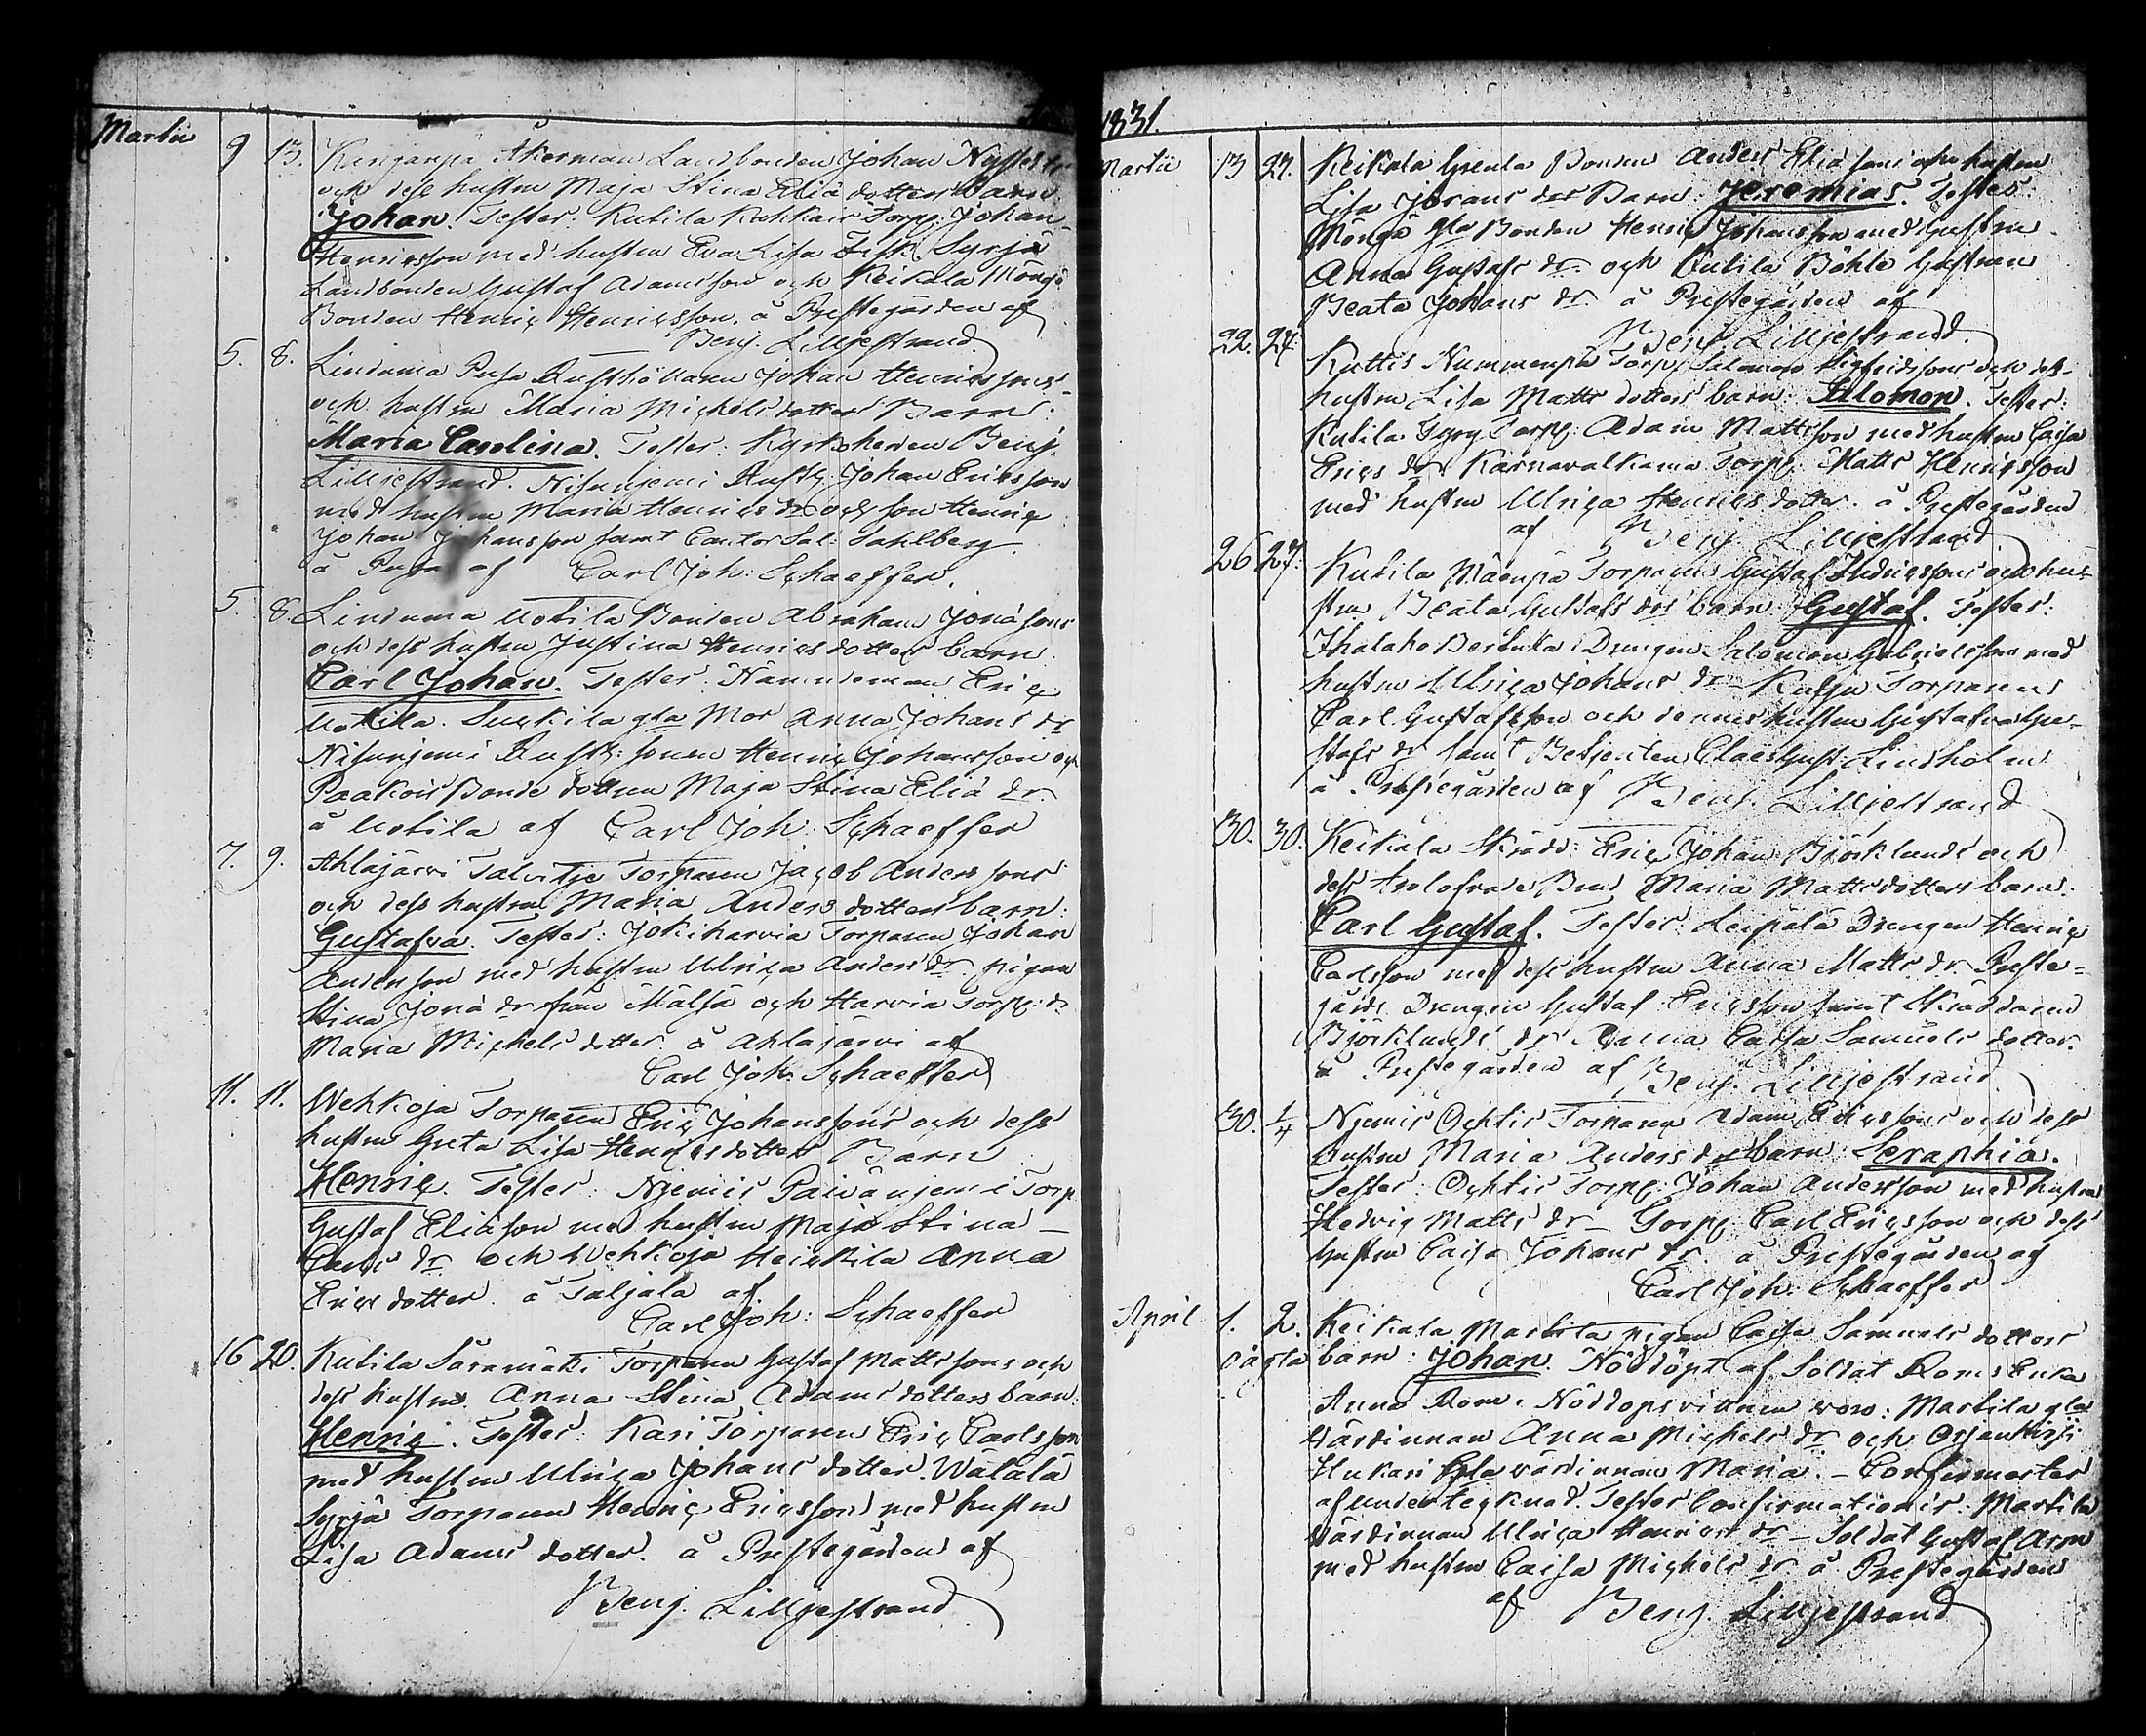 Martii 9 13. Kangarpä Åkerman Landbonden Johan
och dess hustru Maja Stina Eliä dotters barn
Johan. Testes: Kutila Torp: Johan
Henricsson med hustru Eva Lisa Syrjä
Landbonden Gustaf Adamsson och Keikala Mongö
Bonden Henric Henricsson. å Prestegården af
Benj. Lilljestrand.
5. 8. Lindama Pusa Rusthållaren Johan Henricssons
och hustru Maria Michels dotters Barn:
Maria Carolina. Testes: Kyrkoherden Benj.
Lilljestrand. Nisunjemi Rusth: Johan Ericsson
med hustru Maria Henrics dr och son Henric
Johan Johansson samt Cantor Sal: Sahlberg.
å Pusa af Carl Joh: Schaeffer.
5. 8. Lindama Uotila Bonden Abraham Jonäsons
och dess hustru Justina Henrics dotters barn
Carl Johan. Testes: Nämndeman Eric
Uotila. gla Mor Anna Johans dr
Nisunjemi Rusth: sonen Henric Johansson och
Paakois Bonde dottren Maja Stina Eliä dr.
å Uotila af Carl Joh: Schaeffer
7. 9. Ahlajärvi Talvitje Torparen Jacob Anderssons
och dess hustru Maria Anders dotters barn:
Gustafva. Testes: Jokiharvia Torparen Johan
Andersson med hustru Ulrica Anders dr. pigan
Stina Jonä dr från Mälsä och Harvia Torp: dr
Maria Michels dotter å Ahlajärvi af
Carl Joh: Schaeffer
11. 11. Wehkoja Torparen Eric Johanssons och dess
hustru Greta Lisa Henricsdotters Barn
Henric. Testes: Njemis Paivänjemi Torp.
Gustaf Eliäson med hustru Maja Stina
Carls dr och Wehkoja Heickila Anna
Ericsdotter. å Taljala af
Carl Joh: Schaeffer
16 20. Kutila Säramäki Torparen Gustaf Mattssons och
dess hustru Anna Stina Adams dotters barn
Henric. Testes: Kari Torparen Eric Carlsson
med hustru Ulrica Johans dotter. Wälälä
Syrjä Torparen Henric Ericsson med hustru
Lisa Adams dotter. å Prestegården af
Benj. Lilljestrand
1831.
Martii 13 27. Keikala Bonden Anders Eliäsons och hustru
Lisa Jörans drs Barn: Jeremias. Testes:
Mongö gla Bonden Henric Johansson med hustru
Anna Gustafs dr. och Kutila Böhle hustrun
Beata Johans dr. å Prestegården af
Benj. Lilljestrand.
22. 27. Kuttis Nummenpä Torp: Salomon Sigfridssons och dess
hustru Lisa Matts dotters barn: Salomon. Testes:
Kutila Syry Torp: Adam Mattsson med hustru Caisa
Erics dr Karnavalkama Torp: Matts Henricsson
med hustru Ulrica Henrics dotter. å Prestegården
af Benj. Lilljestrand
26 27. Kutila Mäenpä Torparen Gustaf Indricssons och hu-
stru Beata Gustafs drs barn: Gustaf. Testes:
Ihalaho Drengen Salomon Gabrielsson med
hustru Ulrica Johans dr Torparens
Carl Gustafsson och dennes hustru Gustafva Gu-
stafs dr samt Betjenten Claes Gust: Lindholm
å Prestegården af Benj. Lilljestrand
30. 30. Keikala Skrädd: Eric Johan Björklunds och
dess trolofvade Brud Maria Mattsdotters barn:
Carl Gustaf. Testes: Leipälä Drengen Henric
Carlsson med dess hustru Anna Matts dr Preste-
gårds Drengen Gustaf Ericsson samt Skräddaren
Björklunds dr Anna Caisa Samuels dotter.
å Prestegården af Benj. Lilljestrand
30. 1/4 Njemis Ochtis Torparen Adam Ericssons och dess
hustru Maria Anders drs barn Seraphia.
Testes: Ochtis Torp: Johan Andersson med hustru
Hedvig Matts dr Torp: Carl Ericsson och dess
hustru Caisa Johans dr. å Prestegården af
Carl Joh: Schaeffer
April 1. 2. Keikala Martila pigan Caisa Samuels dotters
oägta barn: Johan. Nöddöpt af Soldat Roms Enka
Anna Rom. Nöddops vittnen woro: Martila gla
Värdinnan Anna Michels dr och
Hukari gla värdinnan Maria. - Confirmerter
af undertecknad. Testes Confirmationis: Martila
Värdinnan Ulrica Henrics dr - Soldat Gustaf Arm
med hustru Caisa Michels dr å Prestegården
af Benj. Lilljestrand